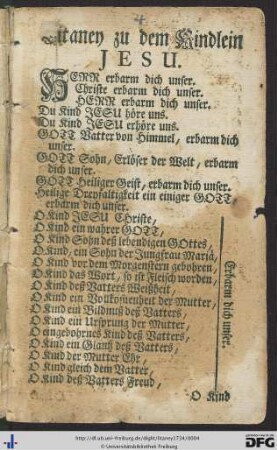 4
Litaney zu dem Kindlein
JESU.
HERR erbarm dich unser.
Christe erbarm dich unser.
HERR erbarm dich unser.
Du Kind JESU höre uns.
Du Kind JESU erhöre uns.
GOTT Vatter von Himmel, erbarm dich
unser.
GOTT Sohn, Erlöser der Welt, erbarm
dich unser.
GOTT Heiliger Geist, erbarm dich unser.
Heilige Dreyfaltigkeit ein einiger GOTT
erbarm dich unser.
O Kind JESU Christe,
O Kind ein wahrer GOTT,
O Kind Sohn deß lebendigen GOttes,
O Kind, ein Sohn der Jungfrau Mariä,
O Kind vor dem Morgenstern gebohren,
O Kind das Wort, so ist Fleisch worden,
O Kind deß Vatters Weißheit
O Kind ein Vollkom̃enheit der Mutter,
O Kind ein Bildnuß deß Vatters,
O Kind ein Ursprung der Mutter,
O eingebohrnes Kind deß Vatters,
O Kind ein Glantz deß Vatters,
O Kind der Mutter Ehr
O Kind gleich dem Vatter,
O Kind deß Vatters Freud,
Erbarm dich unser.
O Kind
http://dl.ub.uni-freiburg.de/diglit/litaney1734/0004
gefördert durch die
DFG